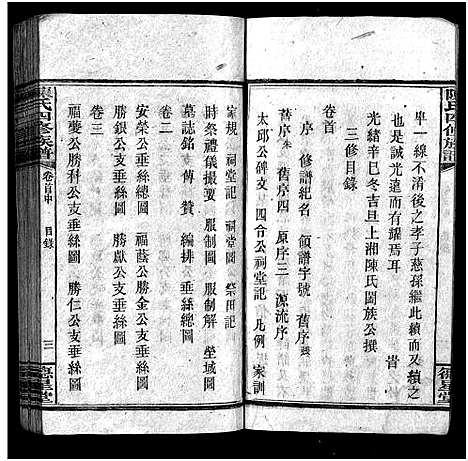 陳氏四修族譜
畢一線不淆後之孝子慈孫繼此續而又續之
也誠光遠而有耀焉耳 昔
光緒辛巳冬吉旦上湘陳氏闔族公撰
三修目錄
卷首
序 修譜紀名 領譜字號 舊序
舊序 舊序四 原序三 源流序
太邱公碑文 四令公祠堂記 凡例 家訓
德星堂
陳氏四修族譜
卷首中 目錄
三
德星堂
家規 祠堂記 祠堂圖 祭田記
時祭禮儀撮要 服制圖 服制解 塋域圖
墓誌銘 傳 贊 編排 垂絲圖
卷二
安榮公支垂絲總圖 福公勝金公支垂絲圖
勝銀公支垂絲圖 勝獻公支垂絲圖
卷三
福公勝科公支垂絲圖 勝仁公支垂絲圖